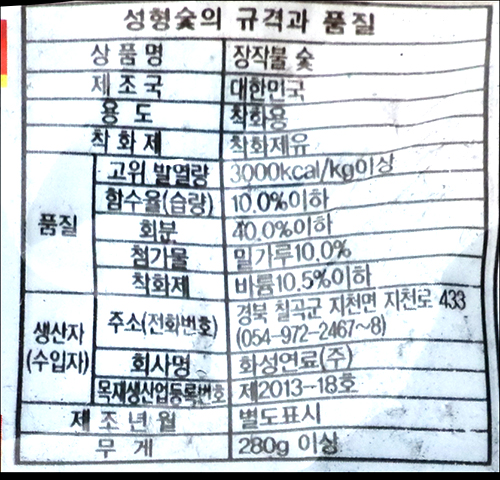 성형숯의 규격과 품질
상 품 명 장작불 숯
제 조 국 대한민국
용 도 착화용
착 화 제 착화제유
품질 고위 발열량 3000kcal/kg이상
함수율(습량) 10.0%이하
회분 40.0%이하
첨가물 밀가루10.0%
착화제 바륨10.5%이하
생산자 (수입자) 주소(전화번호) 경북 칠곡군 지천면 지천로 433
(054-972-2467~8)
회사명 화성연료(주)
목재생산업등록번호 제2013-18호
제 조 년 월 별도표시
무 게 280g 이상